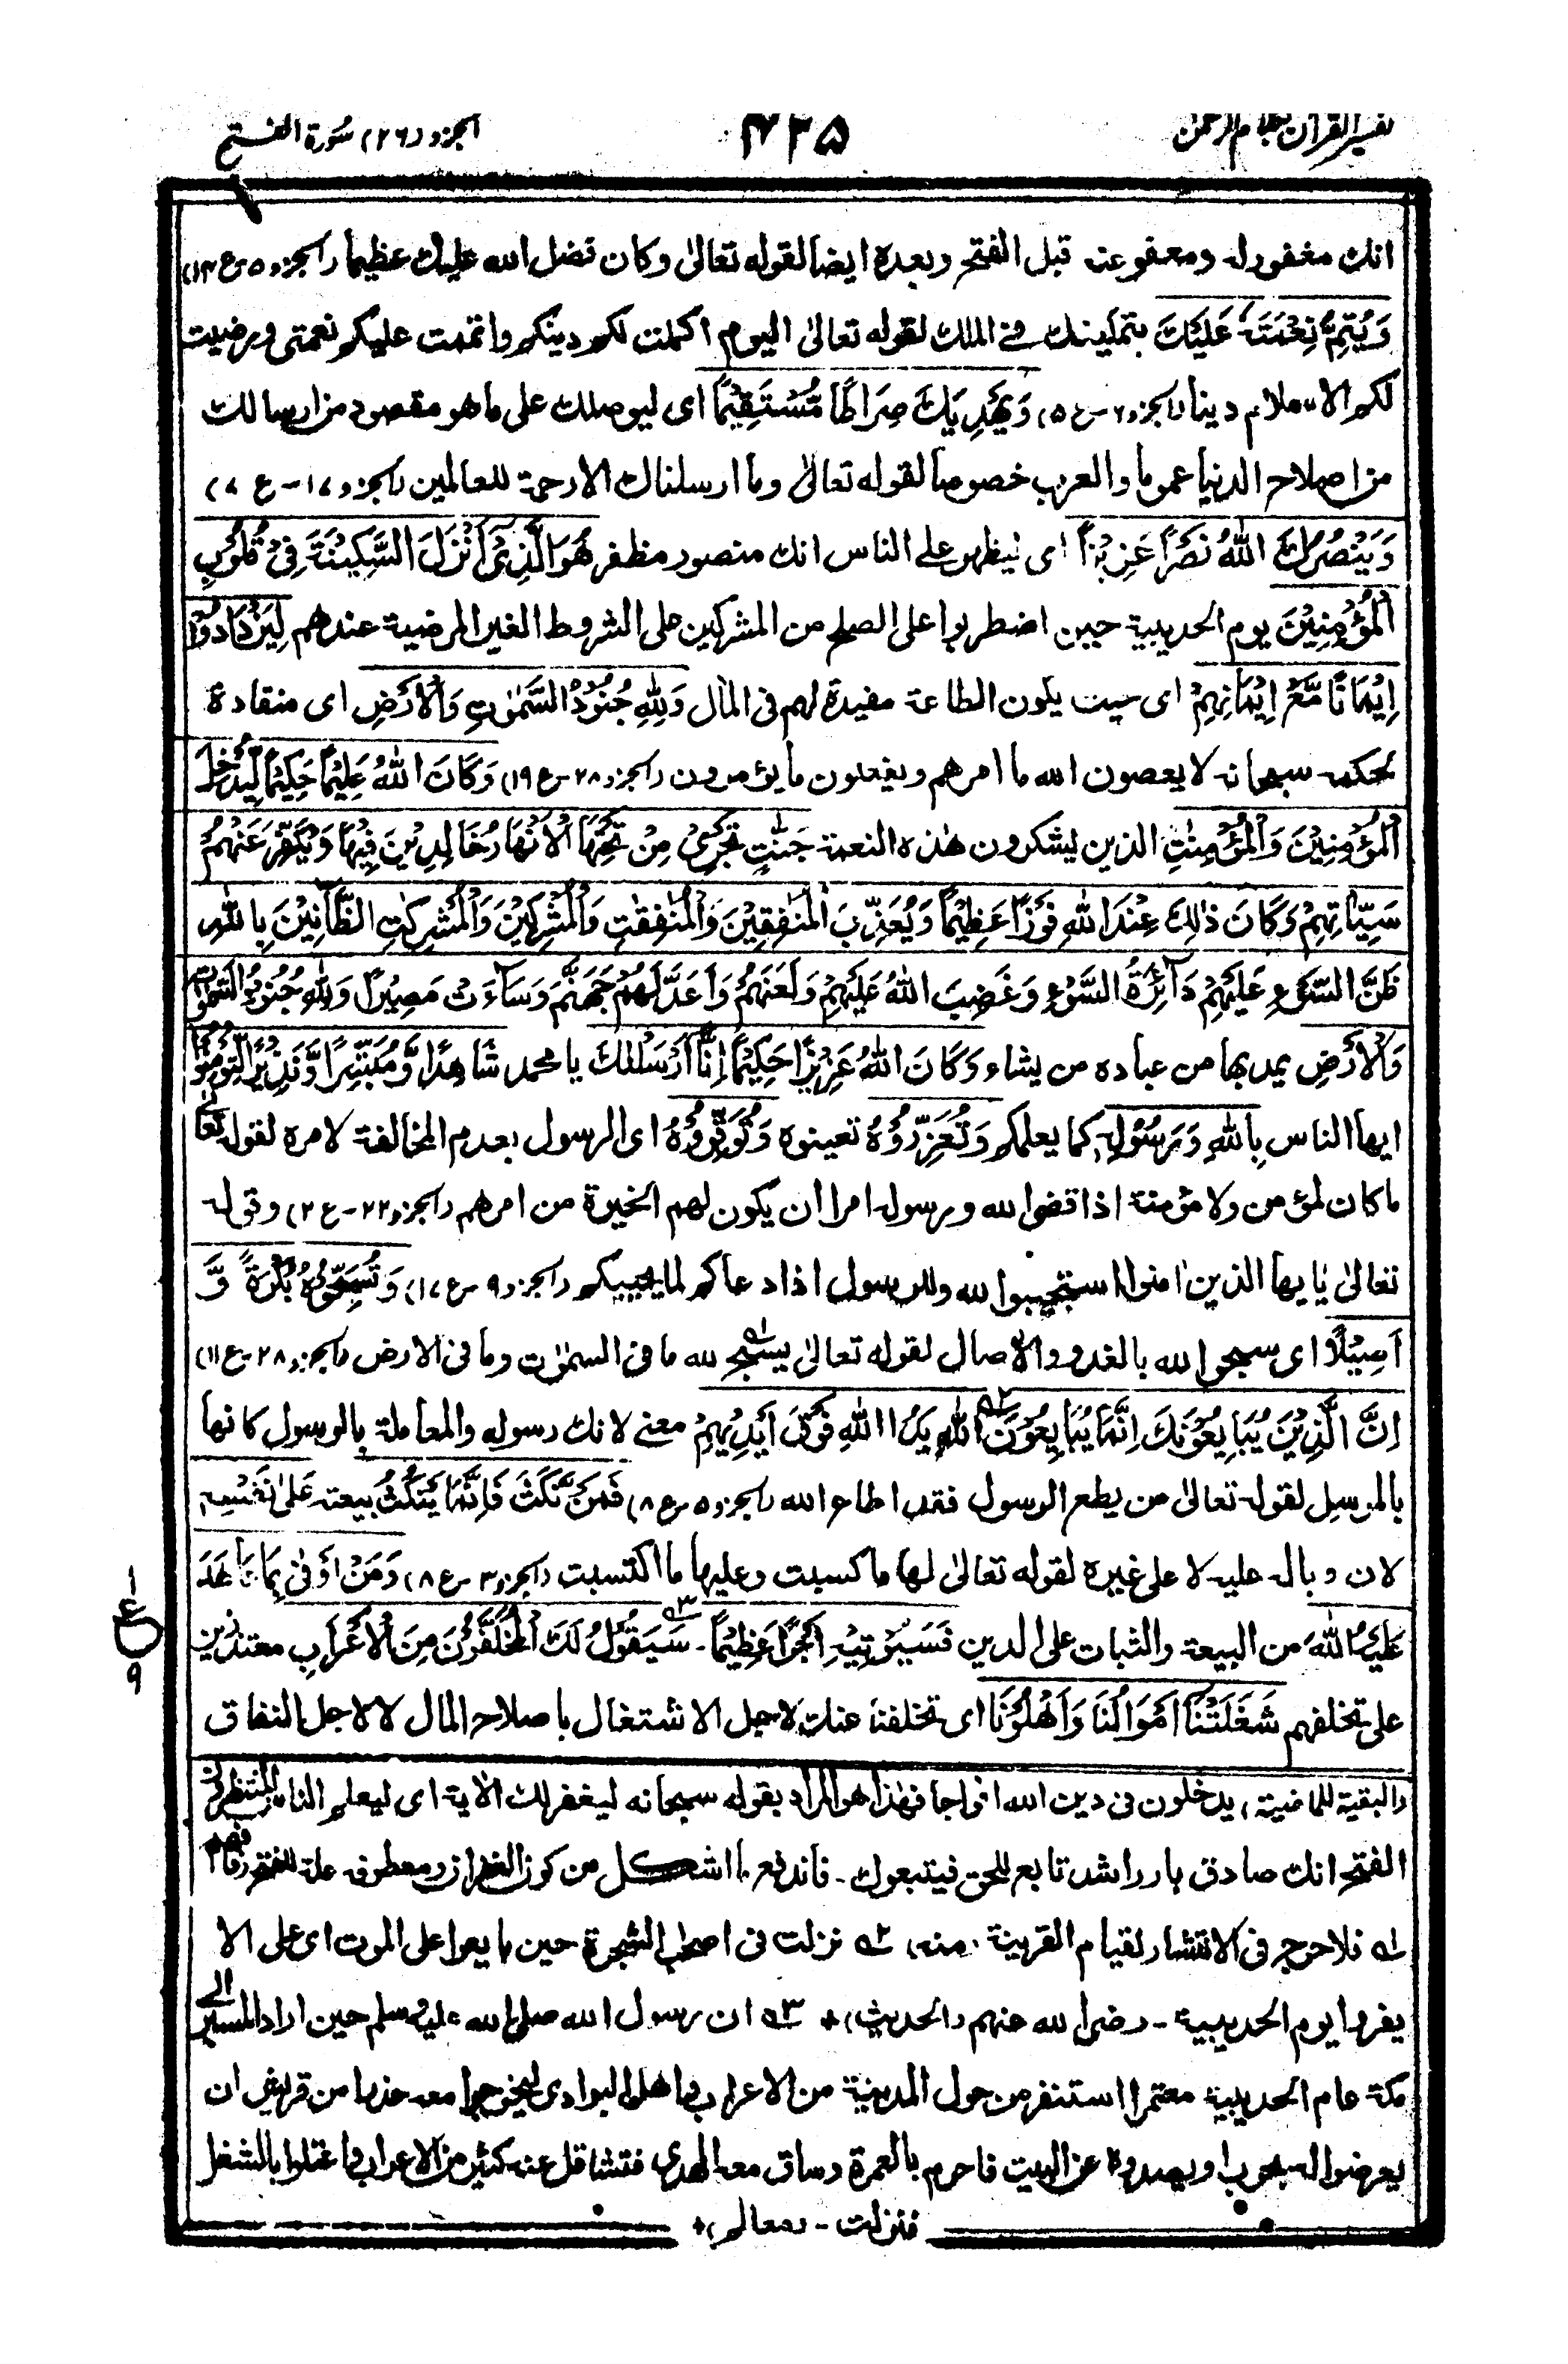 تفسير القرآن بكلام الرحمن
٣٢٥
الجزء (٢٦) سُورة الفتح
انك مغفور له ومعفو عنه قبل الفتح وبعده ايضا لقوله تعالىٰ وكان فضل الله عليك عظيما (الجزء ٥-ع ١٤)
وَيُتِمَّ نِعْمَتَهٗ عَلَيْكَ بتمكينك فے الملك لقوله تعالىٰ اليوم اكملت لكم دينكم واتممت عليكم نعمتى ورضيت
لكم الاسلام دينا (الجزء ٦-ع ٥) وَيَهْدِيَكَ صِرَاطًا مُّسْتَقِيْمًا اى ليوصلك على ما هو مقصود من ارسالك
من اصلاح الدنيا عموما والعرب خصوصا لقوله تعالىٰ وما ارسلناك الا رحمة للعالمين (الجزء ١٧-ع ٧)
وَيَنْصُرَكَ اللّٰهُ نَصْرًا عَزِيْزًا اى ليظهر على الناس انك منصور مظفر هُوَ الَّذِيْ اَنْزَلَ السَّكِيْنَةَ فِيْ قُلُوْبِ
الْمُؤْمِنِيْنَ يوم الحديبية حين اضطربوا على الصلح من المشركين على الشروط الغير المرضية عندهم لِيَزْدَادُوْا
اِيْمَانًا مَّعَ اِيْمَانِهِمْ اى حيث يكون الطاعة مفيدة لهم فى المال وَلِلّٰهِ جُنُوْدُ السَّمٰوٰتِ وَالْاَرْضِ اى منقادة
لحكمه سبحانه لا يعصون الله ما امرهم ويفعلون ما يؤمرون (الجزء ٢٨-ع ١٩) وَكَانَ اللّٰهُ عَلِيْمًا حَكِيْمًا لِّيُدْخِلَ
الْمُؤْمِنِيْنَ وَالْمُؤْمِنٰتِ الذين ليشكرون هذه النعمة جَنّٰتٍ تَجْرِيْ مِنْ تَحْتِهَا الْاَنْهَارُ خَالِدِيْنَ فِيْهَا وَيُكَفِّرَ عَنْهُمْ
سَيِّاٰتِهِمْ وَكَانَ ذٰلِكَ عِنْدَ اللّٰهِ فَوْزًا عَظِيْمًا وَيُعَذِّبَ الْمُنٰفِقِيْنَ وَالْمُنٰفِقٰتِ وَالْمُشْرِكِيْنَ وَالْمُشْرِكٰتِ الظَّانِّيْنَ بِاللّٰهِ
ظَنَّ السَّوْءِ عَلَيْهِمْ دَآئِرَةُ السَّوْءِ وَغَضِبَ اللّٰهُ عَلَيْهِمْ وَلَعَنَهُمْ وَاَعَدَّ لَهُمْ جَهَنَّمَ وَسَآءَتْ مَصِيْرًا وَلِلّٰهِ جُنُوْدُ السَّمٰوٰتِ
وَالْاَرْضِ يمد بها من عباده من يشاء وَكَانَ اللّٰهُ عَزِيْزًا حَكِيْمًا اِنَّا اَرْسَلْنٰكَ يا محمد شَاهِدًا وَّمُبَشِّرًا وَّنَذِيْرًا لِّتُؤْمِنُوْا
ايها الناس بِاللّٰهِ وَرَسُوْلِهٖ كما يعلمكم وَتُعَزِّرُوْهُ تعينوه وَتُوَقِّرُوْهُ اى الرسول بعدم المخالفة لامره لقوله تعالىٰ
ما كان لمؤمن ولا مؤمنة اذا قضى الله ورسوله امرا ان يكون لهم الخيرة من امرهم (الجزء ٢٢-ع ٢) وقوله
تعالىٰ يٰايها الذين اٰمنوا استجيبوا لله وللرسول اذا دعاكم لما يحييكم (الجزء ٩-ع ١٧) وَتُسَبِّحُوْهُ بُكْرَةً وَّ
اَصِيْلًا اى سبحوا لله بالغدو والاٰصال لقوله تعالىٰ يسبح لله ما فى السمٰوٰت وما فى الارض (الجزء ٢٨-ع ١١)
اِنَّ الَّذِيْنَ يُبَايِعُوْنَكَ اِنَّمَا يُبَايِعُوْنَ اللّٰهَ يَدُ اللّٰهِ فَوْقَ اَيْدِيْهِمْ معنے لانك رسوله والمعاملة بالرسول كانها
بالمرسِل لقوله تعالىٰ من يطع الرسول فقد اطاع الله (الجزء ٥-ع ٨) فَمَنْ نَّكَثَ فَاِنَّمَا يَنْكُثُ بيعته عَلٰى نَفْسِهٖ
لان وباله عليه لا على غيره لقوله تعالىٰ لها ما كسبت وعليها ما اكتسبت (الجزء ٣-ع ٨) وَمَنْ اَوْفٰى بِمَا عَاهَدَ
عَلَيْهُ اللّٰهَ من البيعة والثبات على الدين فَسَيُؤْتِيْهِ اَجْرًا عَظِيْمًا - سَيَقُوْلُ لَكَ الْمُخَلَّفُوْنَ مِنَ الْاَعْرَابِ معتذرين
على تخلفهم شَغَلَتْنَا اَمْوَالُنَا وَاَهْلُوْنَا اى تخلفنا عنك لاجل الاشتغال باصلاح المال لا لاجل النفاق
ا ع ٩
(البقية للماضية) يدخلون فى دين الله افواجا فهٰذا هو المراد بقوله سبحانه ليغفر لك الاٰية اى ليعلم الناس المنتظرون
الفتح انك صادق بار راشد تابع للحق فيتبعوك - فاندفع ما اشكل من كون معطوفه علة للفتح فافهم
لـ١ـه فلا حرج فى الانتشار لقيام القرينة (منه) ٢ـه نزلت فى اصحٰب الشجرة حين بايعوا على الموت اى على الا
يفروا يوم الحديبية - رضى الله عنهم (الحديث)+ ٣ـه ان رسول الله صلى الله عليه وسلم حين اراد المسير الى
مكة عام الحديبية معتمرا استنفر من حول المدينة من الاعراب واهل البوادى ليخرجوا معه حذرا من قريش ان
يعرضوا له بحرب او يصدوه عن البيت فاحرم بالعمرة وساق معه الهدى فتثاقل عنه كثير من الاعراب واعتلوا بالشغل
فنزلت - (معالم)+